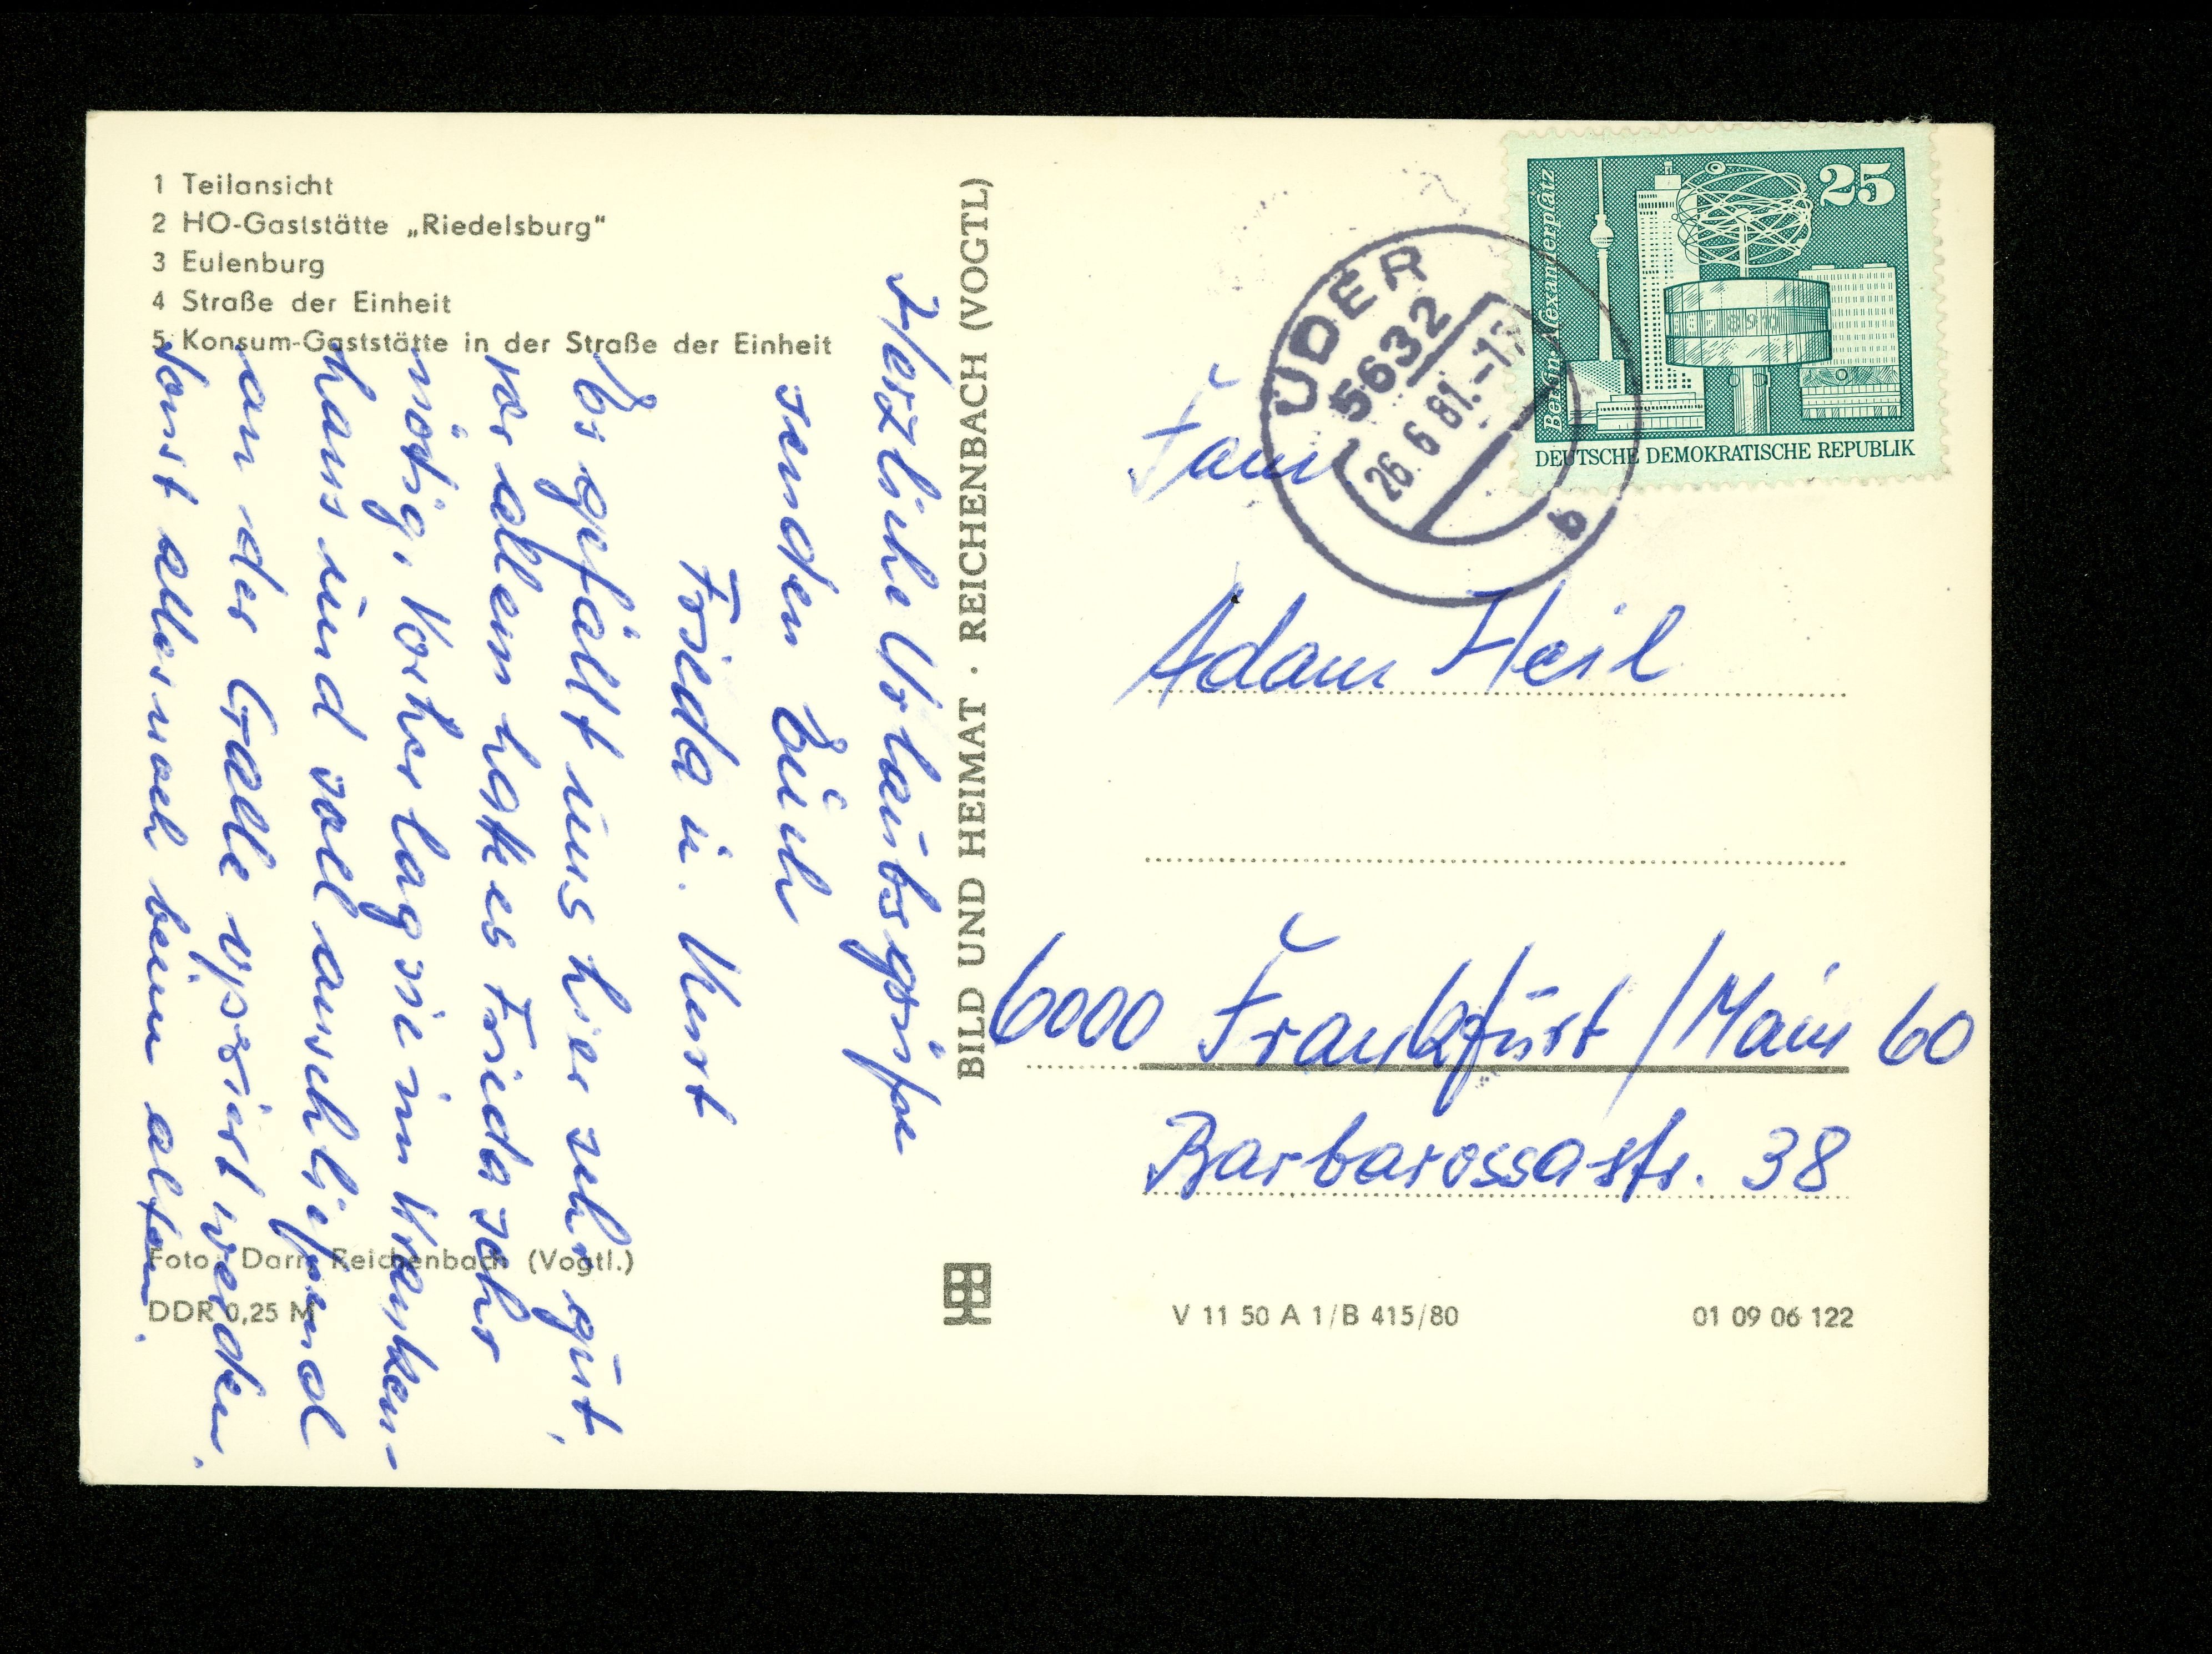 1 Teilansicht
2 HO-Gaststätte „Riedelsburg“
3 Eulenburg
4 Straße der Einheit
5 Konsum-Gaststätte in der Straße der Einheit
Herzliche Urlaubsgrüße
senden Euch
Frieda u. Kurt
Es gefällt uns hier sehr gut,
vor allem hatte es Frieda sehr
nötig. Vorher lag sie im Kranken-
haus und soll anschließend
an der Galle operiert werden.
Sonst alles noch beim alten.
Foto: Darr, Reichenbach (Vogtl.)
DDR 0,25 M
BILD UND HEIMAT · REICHENBACH (VOGTL)
25
Berlin-Alexanderplatz
DEUTSCHE DEMOKRATISCHE REPUBLIK
ÜDER
5632
26.6.81.-17
b
Fam
Adam Heil
6000 Frankfurt/Main 60
Barbarossastr. 38
V 11 50 A 1/B 415/80
01 09 06 122